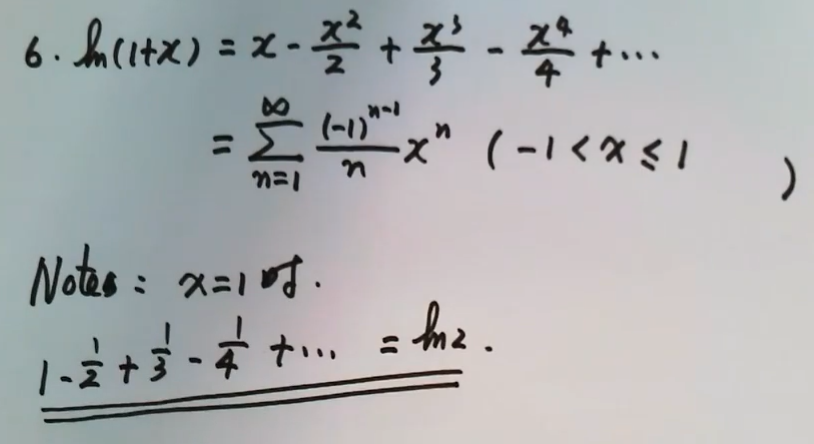 6. ln(1+x) = x - x²/2 + x³/3 - x⁴/4 + ...
= ∑_{n=1}^{∞} (-1)^{n-1}/n xⁿ ( -1 < x ≤ 1 )
Notes: x=1 时.
1 - 1/2 + 1/3 - 1/4 + ... = ln2.